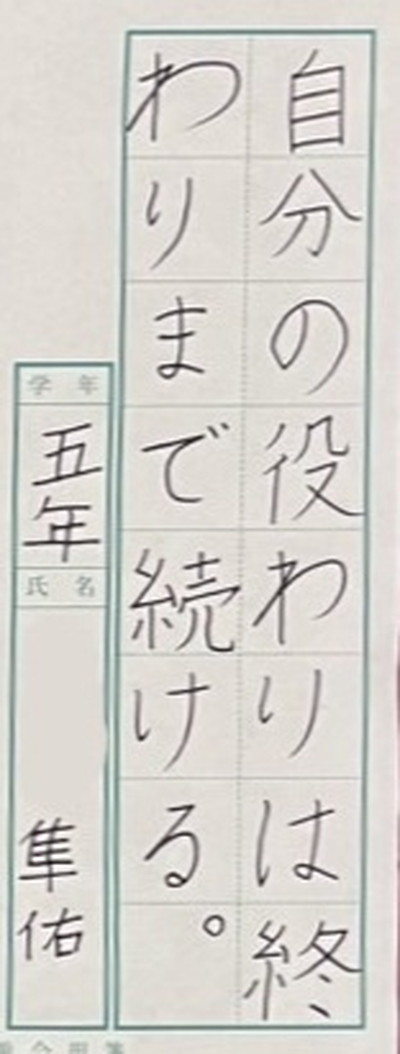 自分の役わりは終
わりまで続ける。
学年
五年
氏名
隼佑